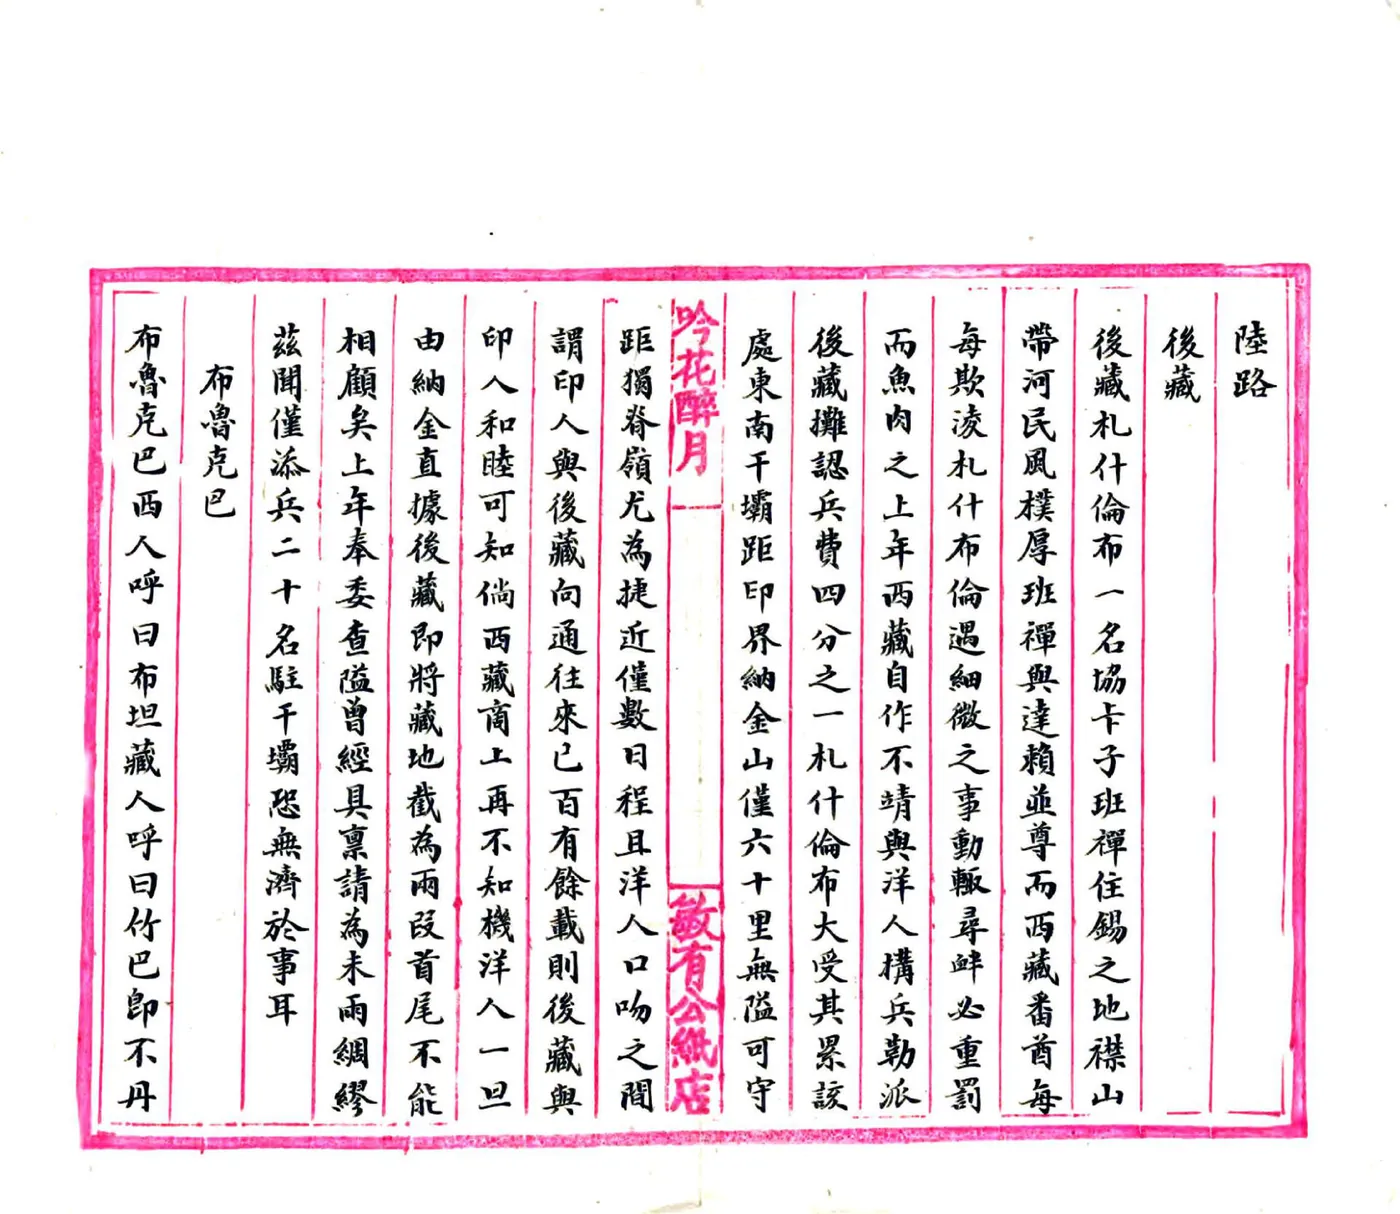 陸路
後藏
後藏札什倫布一名協卡子班禪住錫之地襟山
帶河民風樸厚班禪與達賴並尊而西藏番酋每
每欺淩札什布倫遇細微之事動輒尋衅必重罰
而魚肉之上年西藏自作不靖與洋人構兵勒派
後藏攤認兵費四分之一札什倫布大受其累該
處東南干壩距印界納金山僅六十里無隘可守
吟花醉月
敏有公紙店
距獨脊嶺尤為捷近僅數日程且洋人口吻之間
謂印人與後藏向通往來已百有餘載則後藏與
印人和睦可知倘西藏商上再不知機洋人一旦
由納金直據後藏即將藏地截為兩段首尾不能
相顧矣上年奉委查隘曾經具稟請為未雨綢繆
茲聞僅添兵二十名駐干壩恐無濟於事耳
布魯克巴
布魯克巴西人呼曰布坦藏人呼曰竹巴即不丹